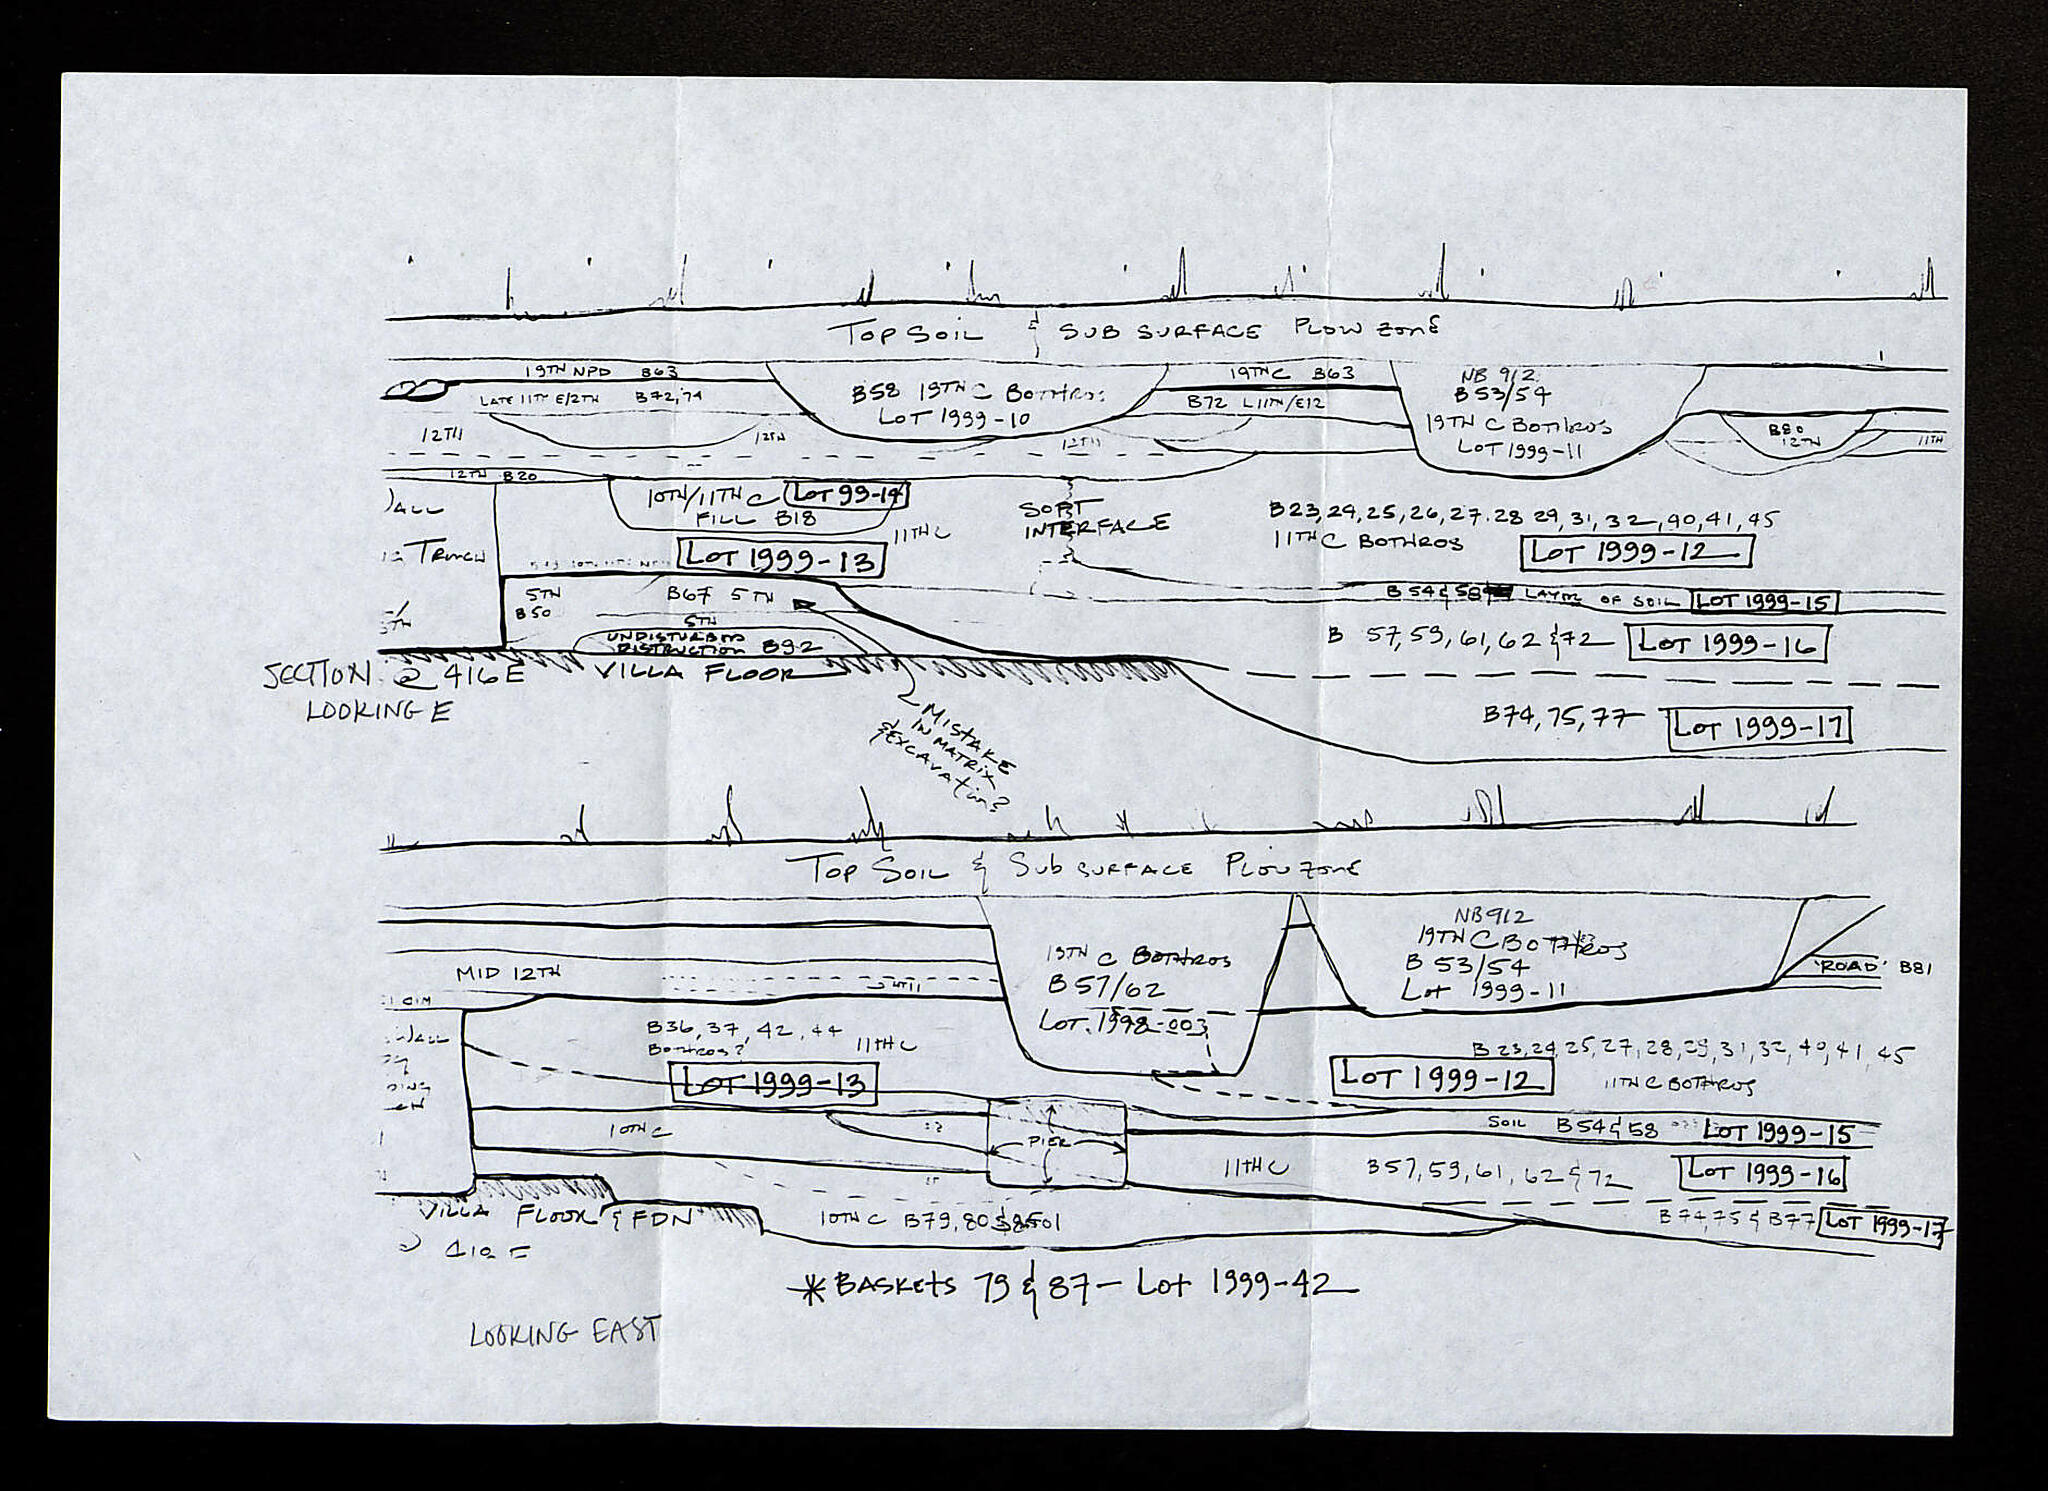 TOP SOIL & SUB SURFACE PLOW ZONE
19TH NPD B63
B58 19TH C BOTHROS
LOT 1999-10
19TH C B63
NB 912
B 53/54
19TH C BOTHROS
LOT 1999-11
LATE 11TH E/2TH B72,74
B72 L11TH/E12
12TH
12TH
12TH
B80
12TH
11TH
12TH B20
10TH/11TH C LOT 99-14
FILL B18
11TH C
SORT
INTERFACE
B23,24,25,26,27.28 29,31,32,40,41,45
11TH C BOTHROS LOT 1999-12
ALL
TRENCH
LOT 1999-13
5TH
B50
B67 5TH
5TH
UNDISTURBED
DISTRUCTION B92
B 54 & 58 LAYER OF SOIL LOT 1999-15
B 57,59,61,62 & 72 LOT 1999-16
SECTION @ 416E VILLA FLOOR
LOOKING E
MISTAKE
IN MATRIX
& EXCAVATION?
B74,75,77 LOT 1999-17
TOP SOIL & SUB SURFACE PLOW ZONE
MID 12TH
19TH C BOTHROS
B 57/62
LOT. 1998-003
NB912
19TH C BOTHROS
B 53/54
LOT 1999-11
'ROAD' B81
B36, 37, 42, 44
BOTHROS? 11TH C
LOT 1999-13
B 23,24,25,27,28,29,31,32,40,41,45
LOT 1999-12 11TH C BOTHROS
WALL
10TH C
PIER
SOIL B54 & 58 LOT 1999-15
11TH C B57,59,61,62 & 72 LOT 1999-16
VILLA FLOOR & FDN
10TH C B79,80
B74,75 & B77 LOT 1999-17
*BASKETS 79 & 87 — LOT 1999-42
LOOKING EAST